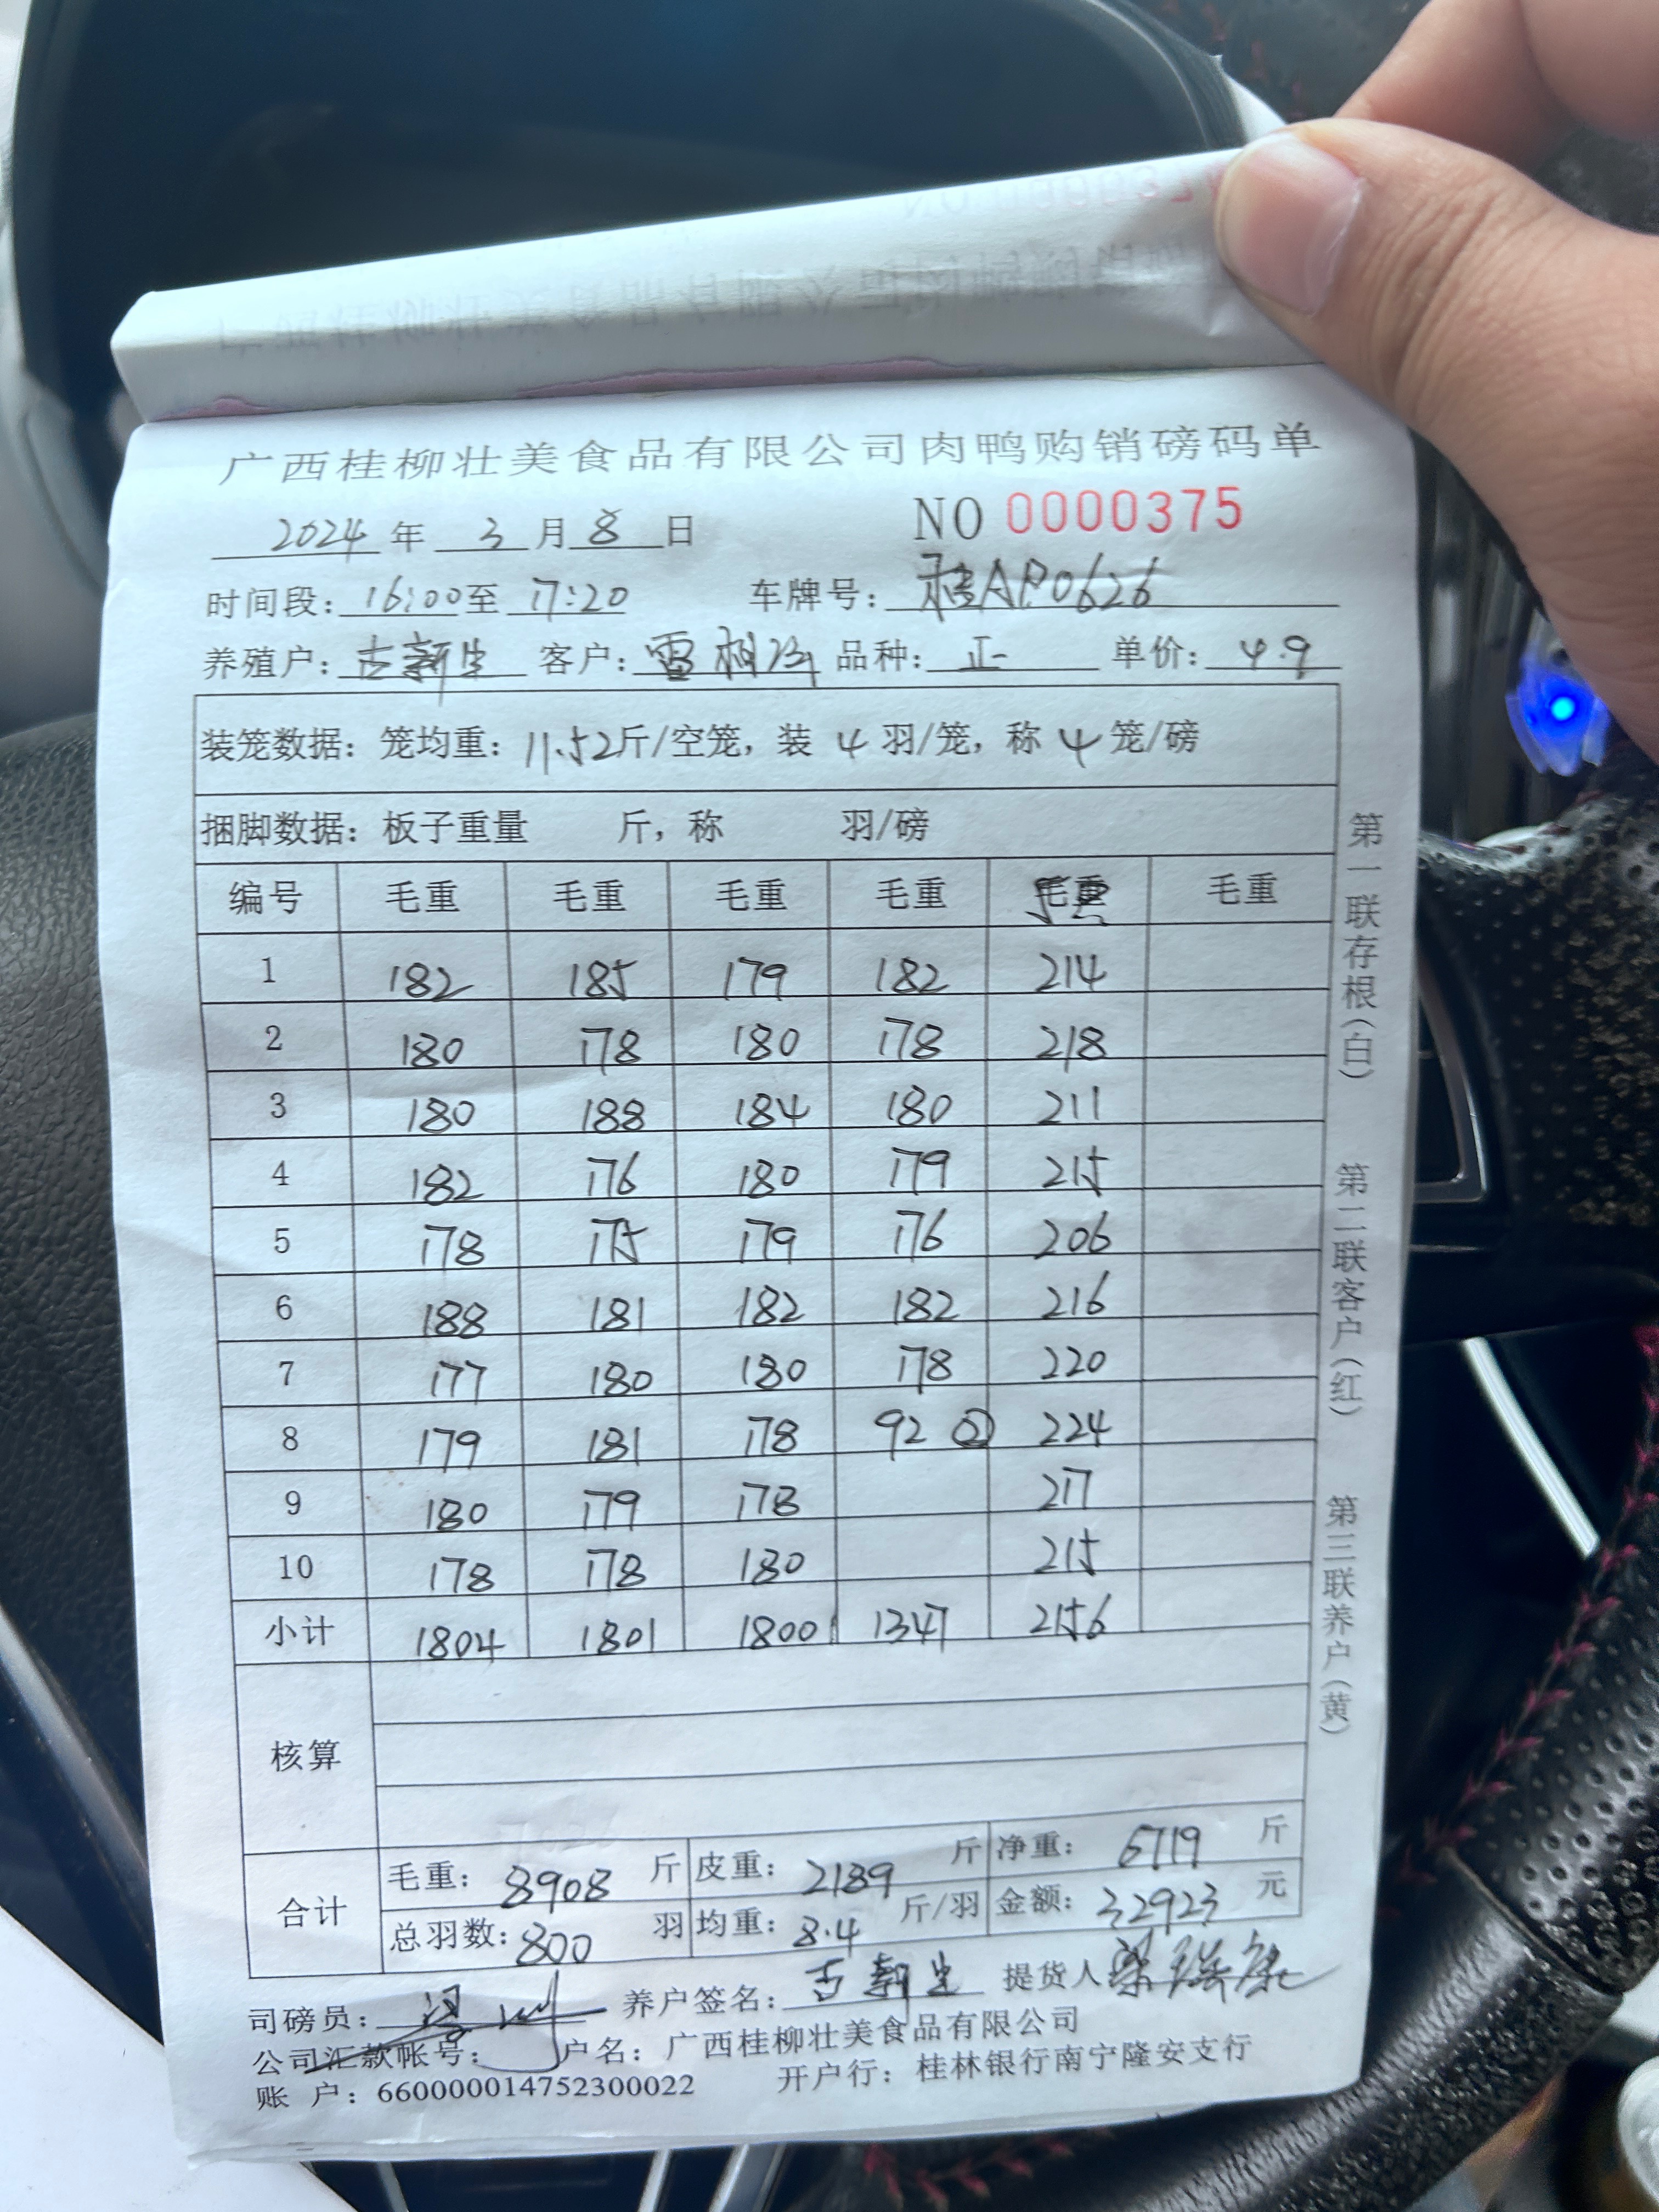 广西桂柳壮美食品有限公司肉鸭购销磅码单
2024 年 3 月 8 日 NO 0000375
时间段: 16:00 至 17:20 车牌号: 桂AP0626
养殖户: 古新生 客户: 雷相 品种: 正 单价: 4.9
装笼数据: 笼均重: 11.52 斤/空笼, 装 4 羽/笼, 称 4 笼/磅
捆脚数据: 板子重量 斤, 称 羽/磅
编号 毛重 毛重 毛重 毛重 毛重 毛重
1 182 185 179 182 214
2 180 178 180 178 218
3 180 188 184 180 211
4 182 176 180 179 215
5 178 175 179 176 206
6 188 181 182 182 216
7 177 180 180 178 220
8 179 181 178 92 ② 224
9 180 179 178 217
10 178 178 180 215
小计 1804 1801 1800 1347 2156
核算
合计 毛重: 8908 斤 皮重: 2189 斤 净重: 6719 斤
总羽数: 800 羽 均重: 8.4 斤/羽 金额: 32923 元
司磅员: 养户签名: 古新生 提货人 梁瑞康
公司汇款帐号: 户名: 广西桂柳壮美食品有限公司
账 户: 660000014752300022 开户行: 桂林银行南宁隆安支行
第一联存根(白) 第二联客户(红) 第三联养户(黄)